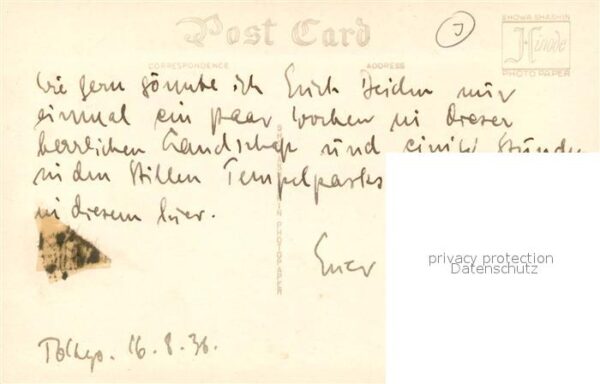 Post Card
SHOWA SHASHIN
Hinode
PHOTO PAPER
CORRESPONDENCE
ADDRESS
J
Wie gern gönnte ich Euch Beiden nur
einmal ein paar Wochen in dieser
herrlichen Landschaft und einige Stunden
in den Stillen Tempelparks
in diesem hier.
Euer
HINODE PHOTO PAPER
privacy protection
Datenschutz
Tokyo. 16.8.36.